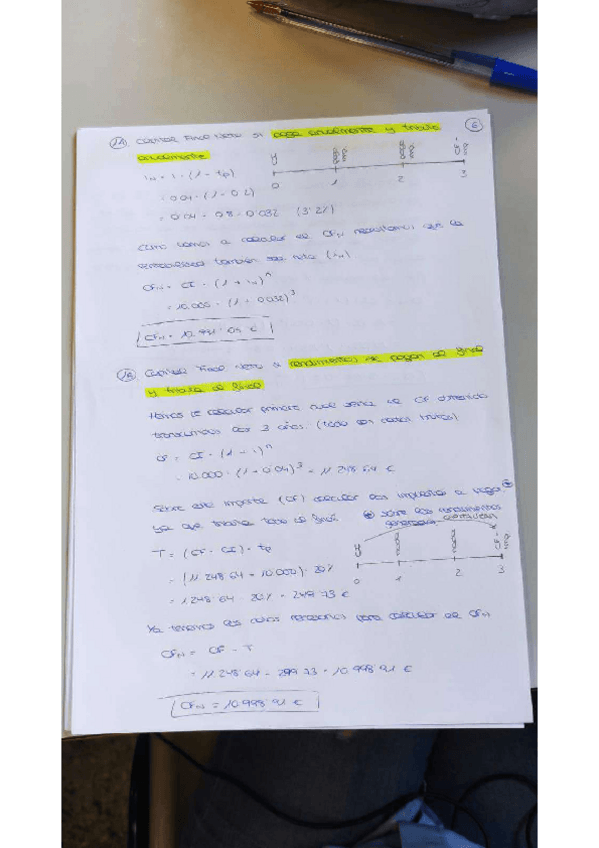 1A. Capital Final Neto si paga anualmente y tributa 6
anualmente
iN = i · (1 - tp)
= 0'04 · (1 - 0'2)
= 0'04 · 0'8 = 0'032 (3'2%)
0 1 2 3
como vamos a calcular el CFN necesitamos que la
rentabilidad también sea neta (iN)
CFN = CI · (1 + iN)ⁿ
= 10.000 · (1 + 0'032)³
CFN = 10.991'05 €
Capital Final Neto si rendimientos se pagan al final
y tributa al final
Hemos de calcular primero cual seria el CF obtenido
transcurridos los 3 años. (todo con datos brutos)
CF = CI · (1 + i)ⁿ
= 10.000 · (1 + 0'04)³ = 11.248'64 €
Sobre este importe (CF) calcular los impuestos a pagar
ya que tributa todo al final. sobre los rendimientos
generados
T = (CF - CI) · tp
= (11.248'64 - 10.000) · 20%
= 1.248'64 · 20% = 249'73 €
0 1 2 3
Ya tenemos los datos necesarios para calcular el CFN
CFN = CF - T
= 11.248'64 - 249'73 = 10.998'91 €
CFN = 10.998'91 €